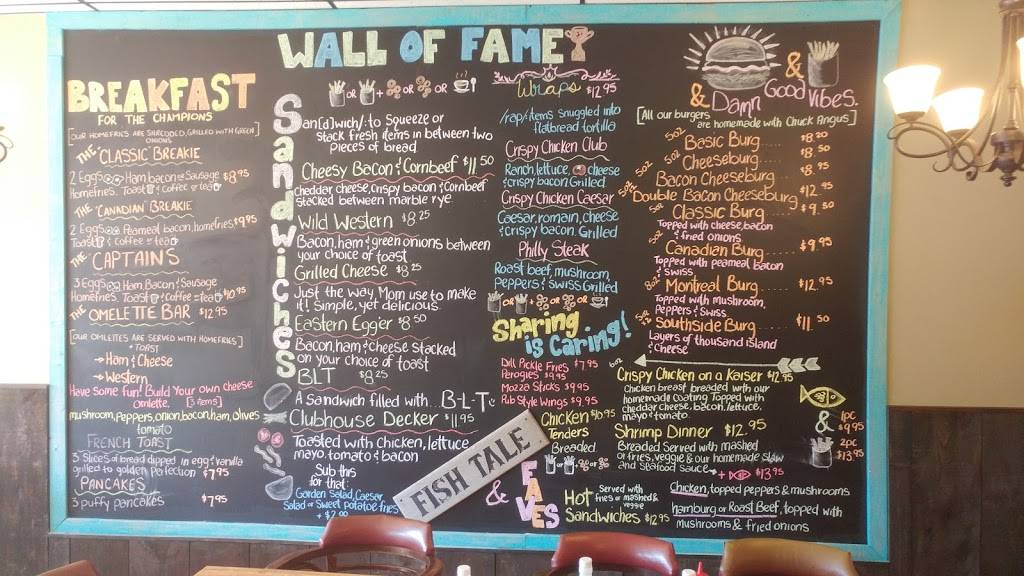 WALL OF FAME
BREAKFAST
FOR THE CHAMPIONS
[OUR HOMEFRIES ARE GRILLED WITH GREEN ONIONS]
THE "CLASSIC" BREAKIE
2 Eggs Ham, bacon, Sausage $8.95
Homefries. Toast & Coffee or tea
THE "CANADIAN" BREAKIE
2 Eggs Peameal bacon, homefries $9.95
Toast & coffee or tea
THE "CAPTAINS"
3 Eggs Ham, Bacon & Sausage
Homefries. Toast & Coffee or tea $10.95
THE "OMELETTE BAR" $12.95
[OUR OMLETTES ARE SERVED WITH HOMEFRIES]
+ TOAST
→ Ham & Cheese
→ Western
Have some fun! Build Your own cheese
omlette. [3 items]
mushroom, peppers, onion, bacon, ham, olives
tomato
FRENCH TOAST
3 Slices of bread dipped in egg & vanilla
grilled to golden perfection $7.95
PANCAKES
3 puffy pancakes $7.95
Sandwiches
OR + OR OR OR
San[d]wich/: to Squeeze or
stack fresh items in between two
pieces of bread
Cheesy Bacon & Cornbeef $11.50
Cheddar cheese, crispy bacon & Cornbeef
stacked between marble rye
Wild Western $8.25
Bacon, ham & green onions between
your choice of toast
Grilled Cheese $8.25
Just the way Mom use to make
it! Simple, yet delicious.
Eastern Egger $8.50
Bacon, ham & cheese stacked
on your choice of toast
BLT $8.25
A sandwich filled with.. B-L-T
Clubhouse Decker $11.95
Toasted with Chicken, lettuce,
mayo, tomato & bacon
Sub this
for that:
Garden Salad, Caesar
Salad or Sweet potatoe fries
+ $2.00
Wraps $12.95
/rap/: items snuggled into
flatbread tortilla
Crispy Chicken Club
Ranch, lettuce, cheese
& crispy bacon. Grilled
Crispy Chicken Caesar
Caesar, romain, cheese
& crispy bacon. Grilled
Philly Steak
Roast beef, mushroom,
peppers & swiss Grilled
OR + OR OR OR
Sharing
is Caring!
Dill Pickle Fries $7.95
Perogies $9.95
Mozza Sticks $9.95
Pub Style Wings $9.95
Chicken $10.95
Tenders
Breaded.
FISH TALE
& FAVES
Hot Served with
fries or mashed &
veggie
Sandwiches $12.95
&
& Damn Good Vibes.
[All our burgers
are homemade with Chuck Angus]
5oz Basic Burg $8.20
5oz Cheeseburg $8.50
5oz Bacon Cheeseburg $8.95
Double Bacon Cheeseburg $12.95
5oz Classic Burg $9.50
Topped with cheese, bacon
& fried onions
5oz Canadian Burg $9.95
Topped with peameal bacon
& swiss
8oz Montreal Burg $12.95
Topped with mushroom,
Peppers & Swiss
8oz Southside Burg $11.50
Layers of thousand island
& cheese
Crispy Chicken on a Kaiser $12.95
Chicken breast breaded with our
homemade coating. Topped with
cheddar cheese, bacon, lettuce,
mayo & tomato
Shrimp Dinner $12.95
Breaded Served with mashed
or fries, veggie & our homemade slaw
and seafood sauce + $13.95
&
1pc
$9.95
2pc
$13.95
Chicken, topped peppers & mushrooms
hamburg or Roast Beef, topped with
mushrooms & fried onions